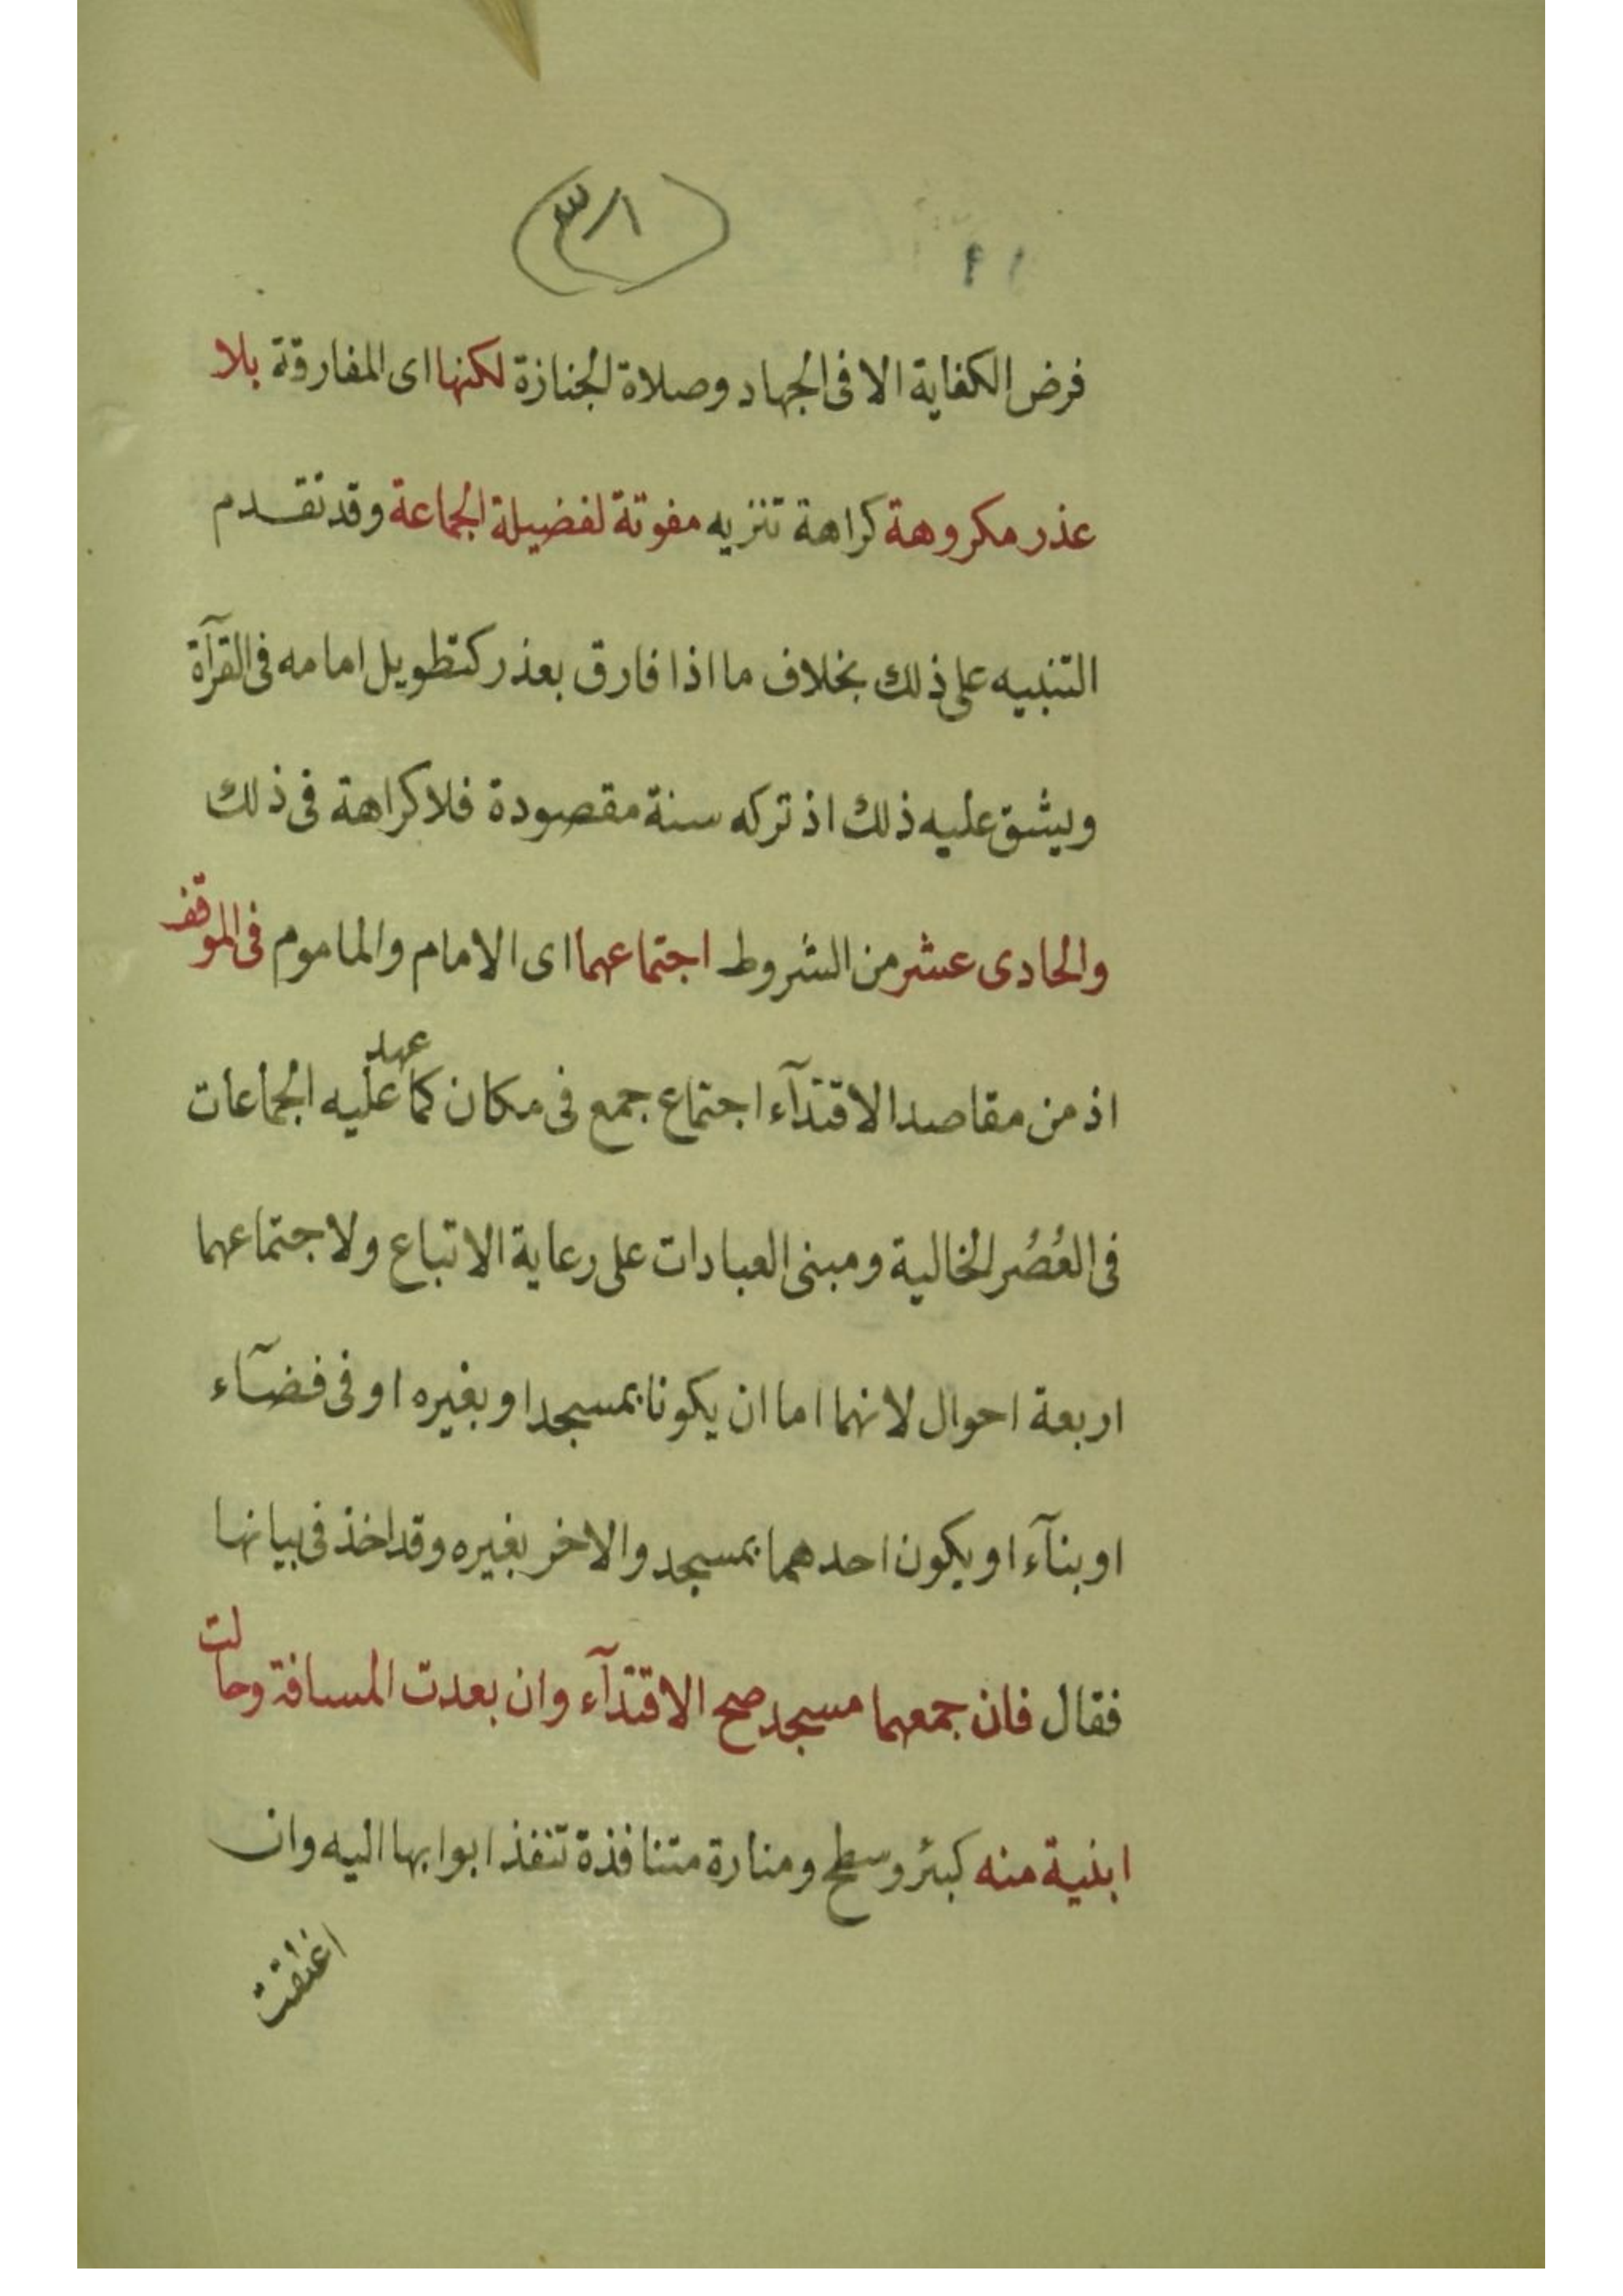 فرض الكفاية الا فى الجهاد وصلاة الجنازة لكنها اى المفارقة بلا
عذر مكروهة كراهة تنزيه مفوتة لفضيلة الجماعة وقد تقدم
التنبيه على ذلك بخلاف ما اذا فارق بعذر كتطويل امامه فى القرآة
ويشق عليه ذلك اذ تركه سنة مقصودة فلا كراهة فى ذلك
والحادى عشر من الشروط اجتماعهما اى الامام والماموم فى الموقف
اذ من مقاصد الاقتدآء اجتماع جمع فى مكان كما عهد عليه الجماعات
فى العُصُر الخالية ومبنى العبادات على رعاية الاتباع ولاجتماعهما
اربعة احوال لانهما اما ان يكونا بمسجد او بغيره او فى فضآء
او بنآء او يكون احدهما بمسجد والاخر بغيره وقد اخذ فى بيانها
فقال فان جمعهما مسجد صح الاقتدآء وان بعدت المسافة وحالت
ابنية منه كبئر وسطح ومنارة متنافذة تنفذ ابوابها اليه وان
اغلقت